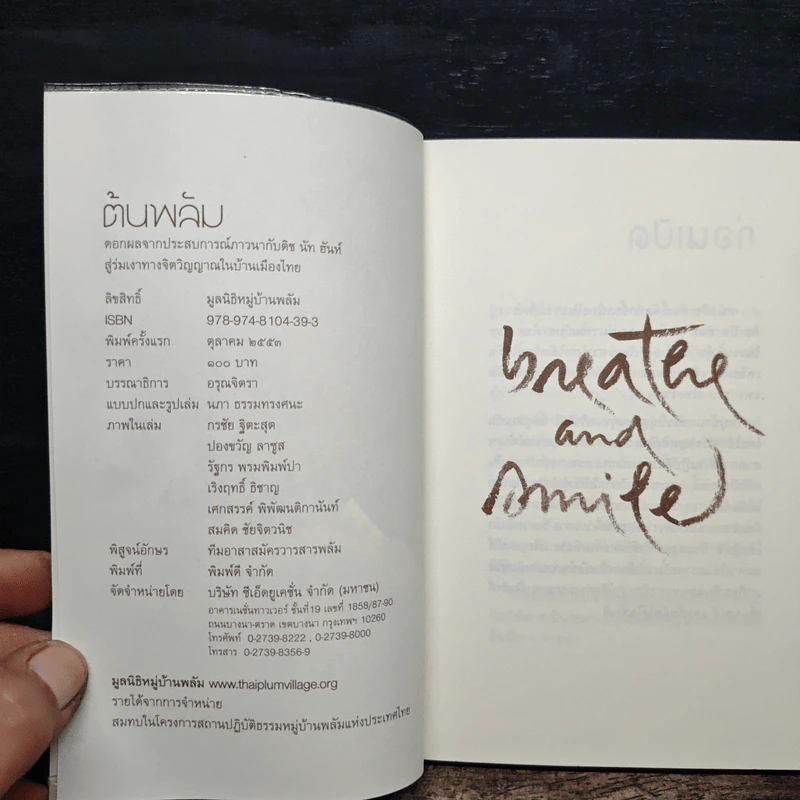 ต้นพลัม
ดอกผลจากประสบการณ์ภาวนากับติช นัท ฮันห์
สู่ร่มเงาทางจิตวิญญาณในบ้านเมืองไทย
ลิขสิทธิ์ มูลนิธิหมู่บ้านพลัม
ISBN 978-974-8104-39-3
พิมพ์ครั้งแรก ตุลาคม ๒๕๕๓
ราคา ๑๐๐ บาท
บรรณาธิการ อรุณจิตรา
แบบปกและรูปเล่ม นภา ธรรมทรงศนะ
ภาพในเล่ม กรชัย ฐิตะสุต
ปองขวัญ ลาซูส
รัฐกร พรมพิมพ์ปา
เริงฤทธิ์ ธิชาญ
เศกสรรค์ พิพัฒนติกานันท์
สมคิด ชัยจิตวนิช
พิสูจน์อักษร ทีมอาสาสมัครวารสารพลัม
พิมพ์ที่ พิมพ์ดี จำกัด
จัดจำหน่ายโดย บริษัท ซีเอ็ดยูเคชั่น จำกัด (มหาชน)
อาคารเนชั่นทาวเวอร์ ชั้นที่ 19 เลขที่ 1858/87-90
ถนนบางนา-ตราด เขตบางนา กรุงเทพฯ 10260
โทรศัพท์ 0-2739-8222 , 0-2739-8000
โทรสาร 0-2739-8356-9
มูลนิธิหมู่บ้านพลัม www.thaiplumvillage.org
รายได้จากการจำหน่าย
สมทบในโครงการสถานปฏิบัติธรรมหมู่บ้านพลัมแห่งประเทศไทย
breathe
and
smile